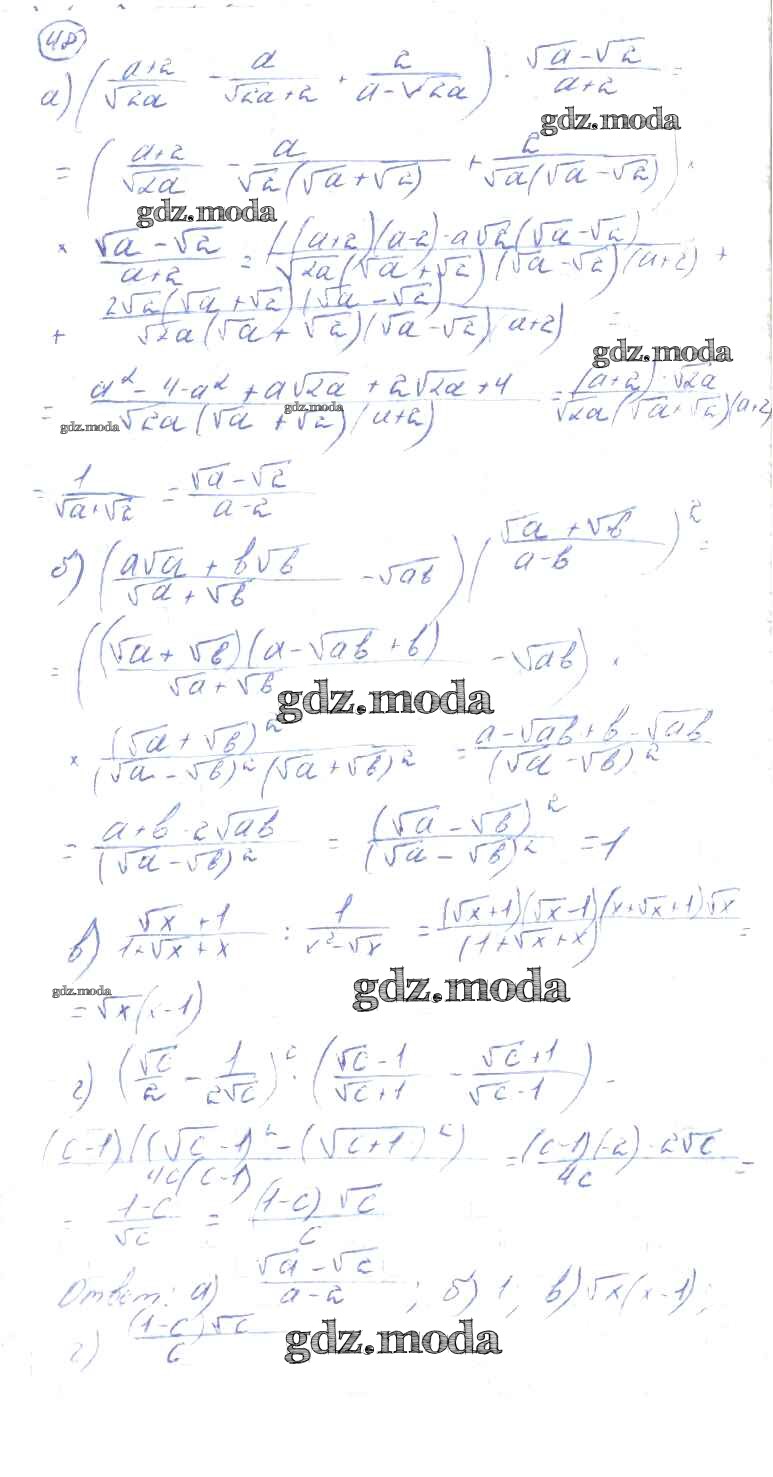 48
а) ((a+2)/√2a - a/(√2a+2) + 2/(a-√2a)) · (√a-√2)/(a+2) =
gdz.moda
= ((a+2)/√2a - a/(√2(√a+√2)) + 2/(√a(√a-√2))) ·
gdz.moda
× (√a-√2)/(a+2) = ((a+2)(a-2)-a√2(√a-√2))/(√2a(√a+√2)(√a-√2)(a+2)) +
+ 2√2(√a+√2)(√a-√2)/(√2a(√a+√2)(√a-√2)(a+2)) =
gdz.moda
= (a²-4-a²+a√2a+2√2a+4)/(√2a(√a+√2)(a+2)) = (a+2)·√2a/(√2a(√a+√2)(a+2))
gdz.moda gdz.moda
= 1/(√a+√2) = (√a-√2)/(a-2)
б) ((a√a+b√b)/(√a+√b) - √ab)((√a+√b)/(a-b))² =
= ((√a+√b)(a-√ab+b)/(√a+√b) - √ab) ·
gdz.moda
× (√a+√b)²/((√a-√b)²(√a+√b)²) = (a-√ab+b-√ab)/(√a-√b)²
= (a+b-2√ab)/(√a-√b)² = (√a-√b)²/(√a-√b)² = 1
в) (√x+1)/(1+√x+x) : 1/(x²-√x) = (√x+1)(√x-1)(x+√x+1)√x/(1+√x+x) =
gdz.moda
= √x(x-1)
gdz.moda
г) (√c/2 - 1/(2√c))² : ((√c-1)/(√c+1) - (√c+1)/(√c-1)) -
(c-1)((√c-1)²-(√c+1)²)/(4c(c-1)) = (c-1)(-2)·2√c/4c =
= (1-c)/√c = (1-c)√c/c
Ответ: а) (√a-√c)/(a-2); б) 1; в) √x(x-1);
г) (1-c)√c/c
gdz.moda